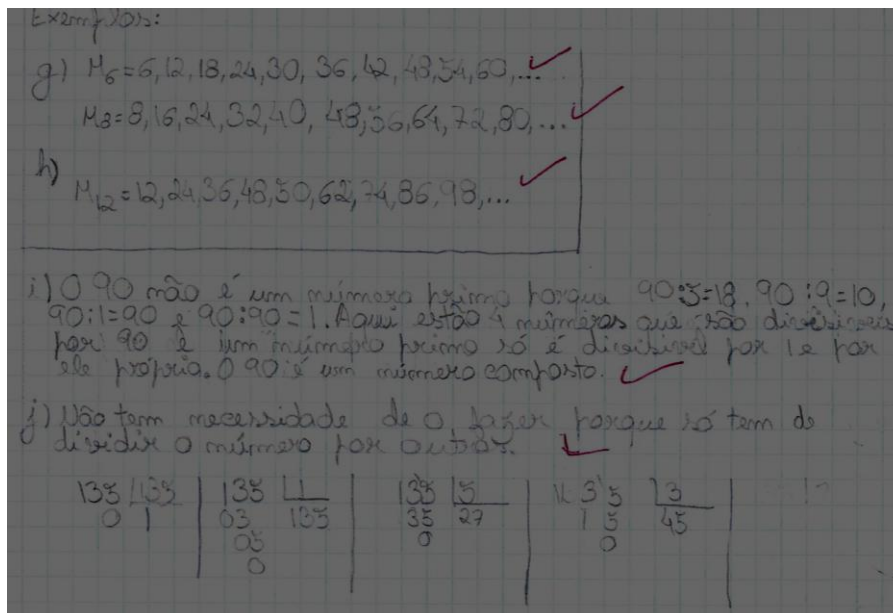 Exemplos:
g) M6=6,12,18,24,30, 36,42,48,54,60,...
M8=8,16,24,32,40, 48,56,64,72,80,...
h)
M12=12,24,36,48,50,62,74,86,98,...
i) O 90 não é um número primo porque 90:5=18, 90:9=10,
90:1=90 e 90:90=1. Aqui estão 4 números que são divisíveis
por 90 e um número primo só é divisível por 1 e por
ele próprio. O 90 é um número composto.
j) Não tem necessidade de o fazer porque só tem de
dividir o número por outros.
135 |135 135 |1 135 |5 135 |3
0 1 03 135 35 27 15 45
05 0 0
0